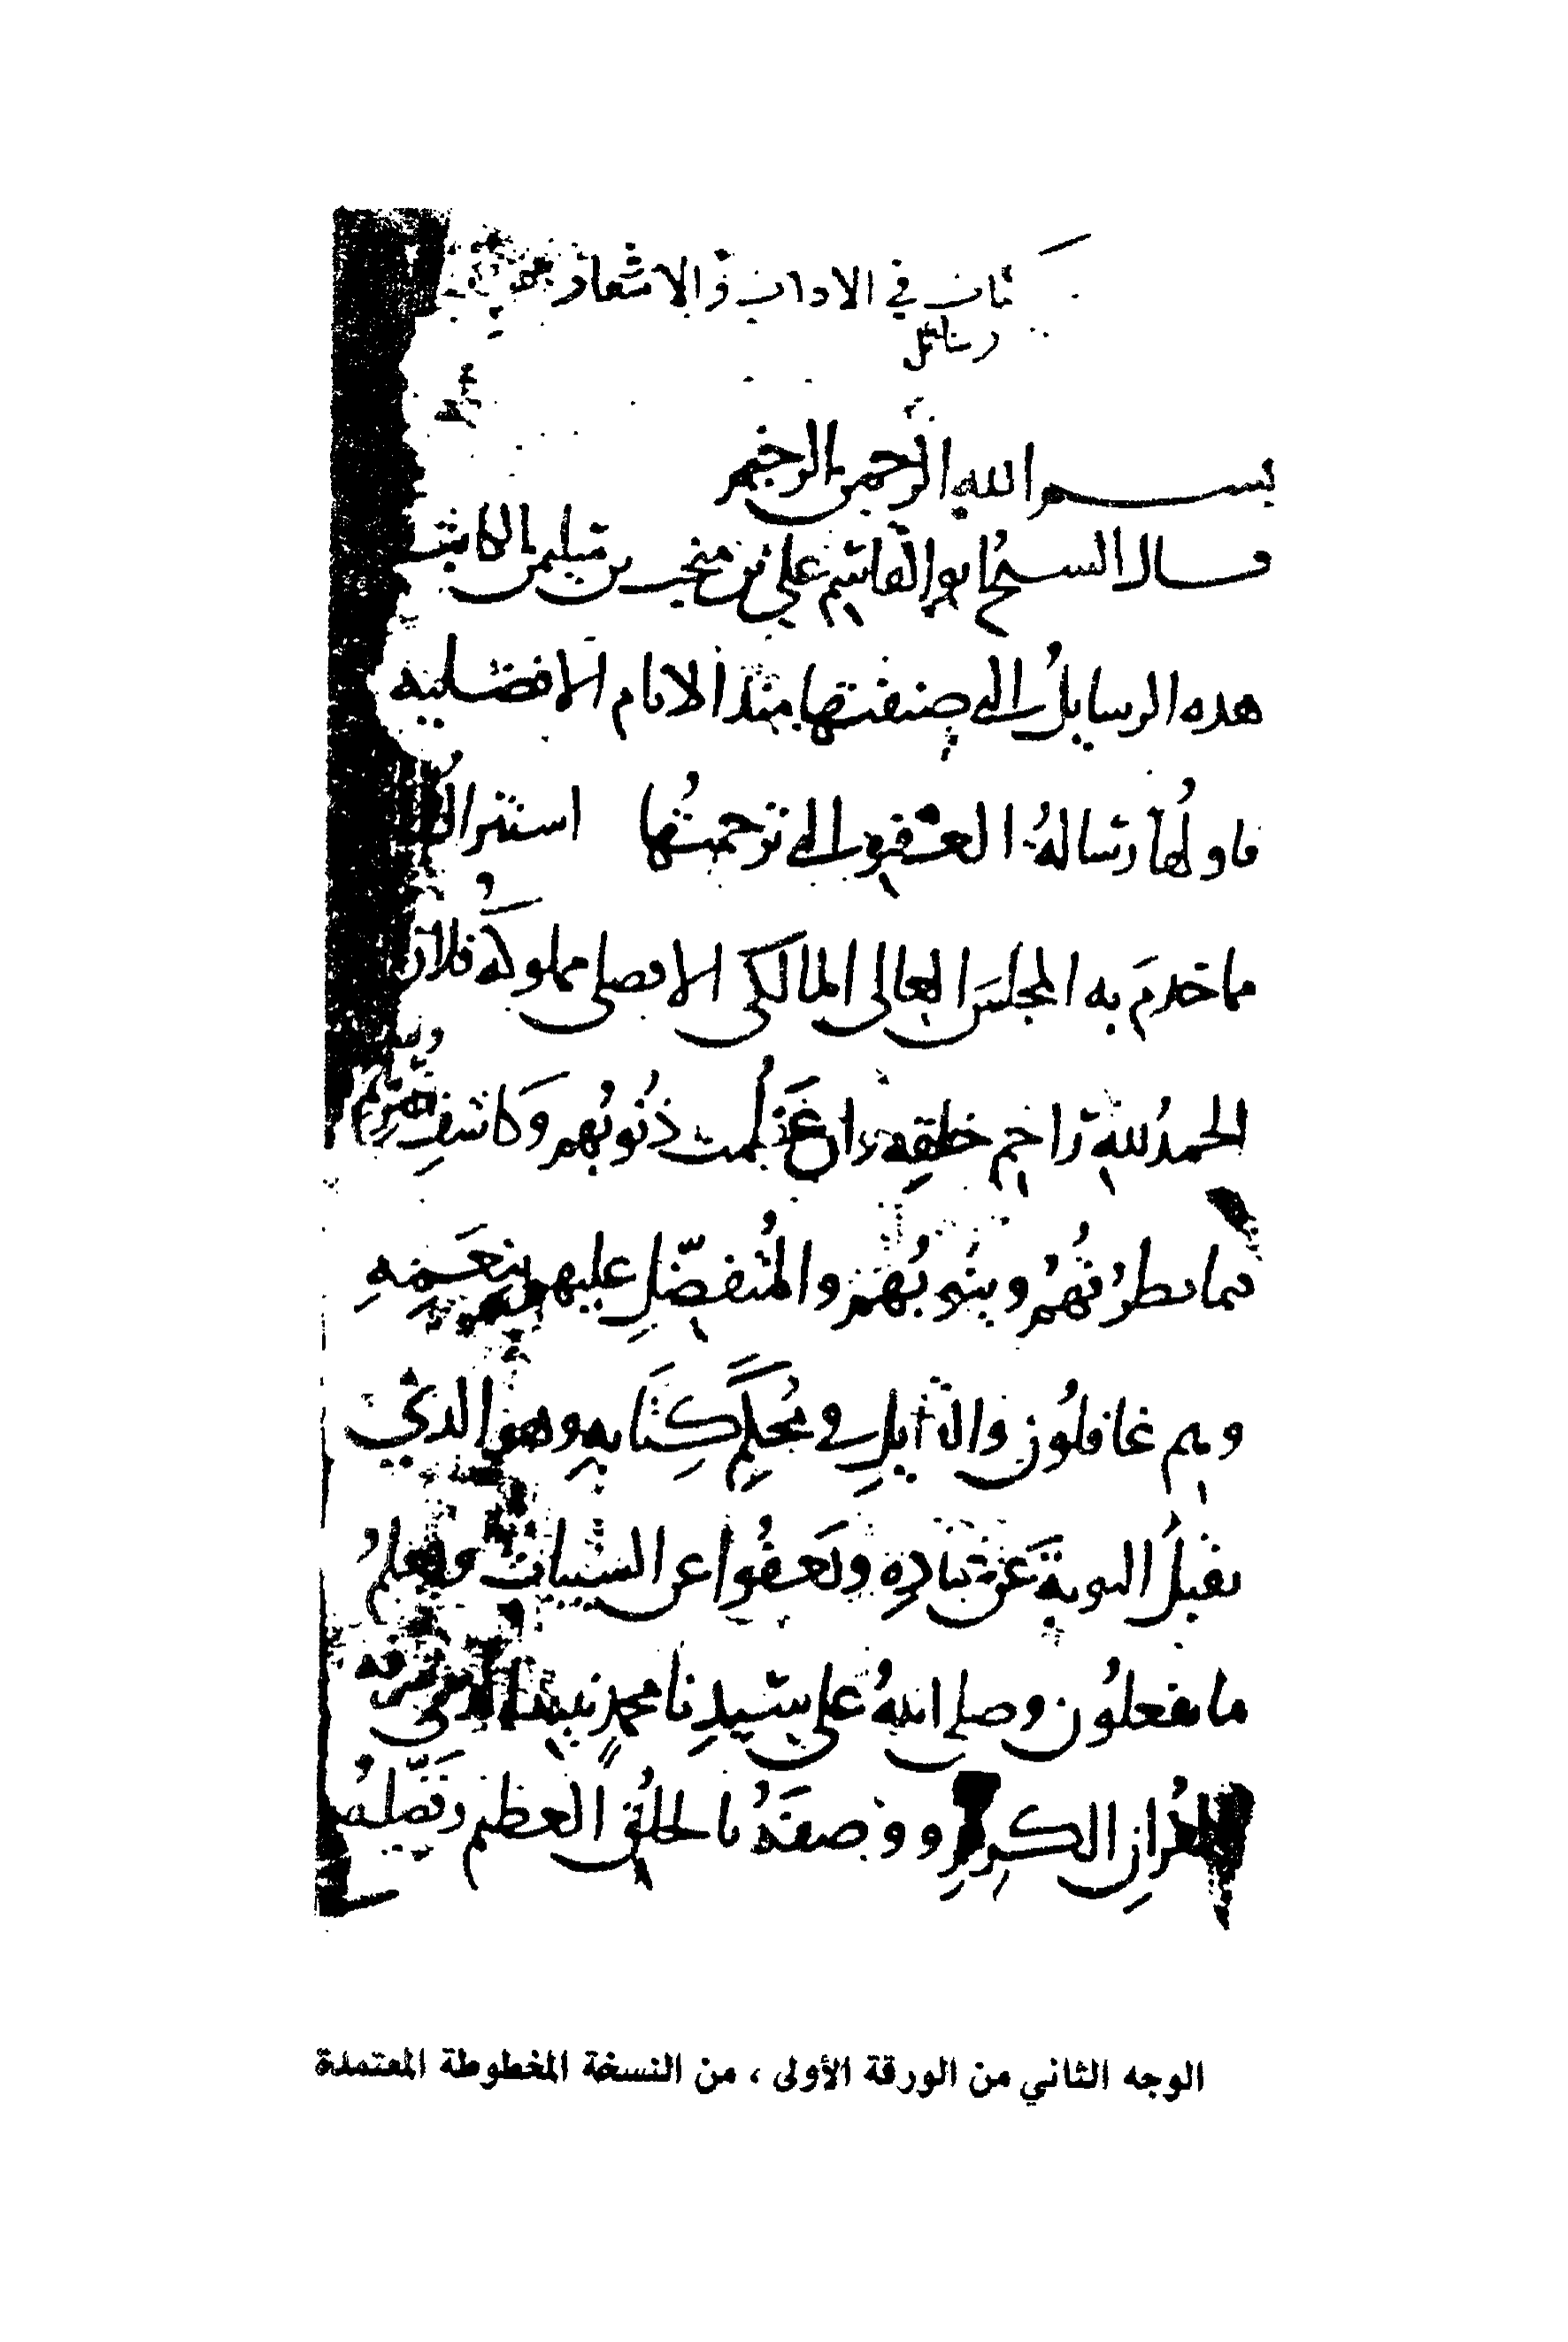 في الاداب والاشعار
رسائل
بسم الله الرحمن الرحيم
قال الشيخ ابو القاسم علي بن منجب بن سليمن الكاتب
هذه الرسايل التي صنفتها منذ الايام الافضليه
فاولها رسالة العفو التي ترجمتها
ما خدم به المجلس العالي المالكي الافضلي مملوكه فلان
الحمد لله راحم خلقه وان عظمت ذنوبهم وكاشف
فيما وينوبهم والمتفضل عليهم بنعمه
وهم غافلون والقايل في محكم كتابه وهو الذي
يقبل التوبة عن عباده ويعفوا عن السييات ويعلم
ما يفعلون وصلى الله على سيدنا محمد نبيه الذي
الكريم ووصفه بالخلق العظيم وفضله
الوجه الثاني من الورقة الأولى ، من النسخة المخطوطة المعتمدة